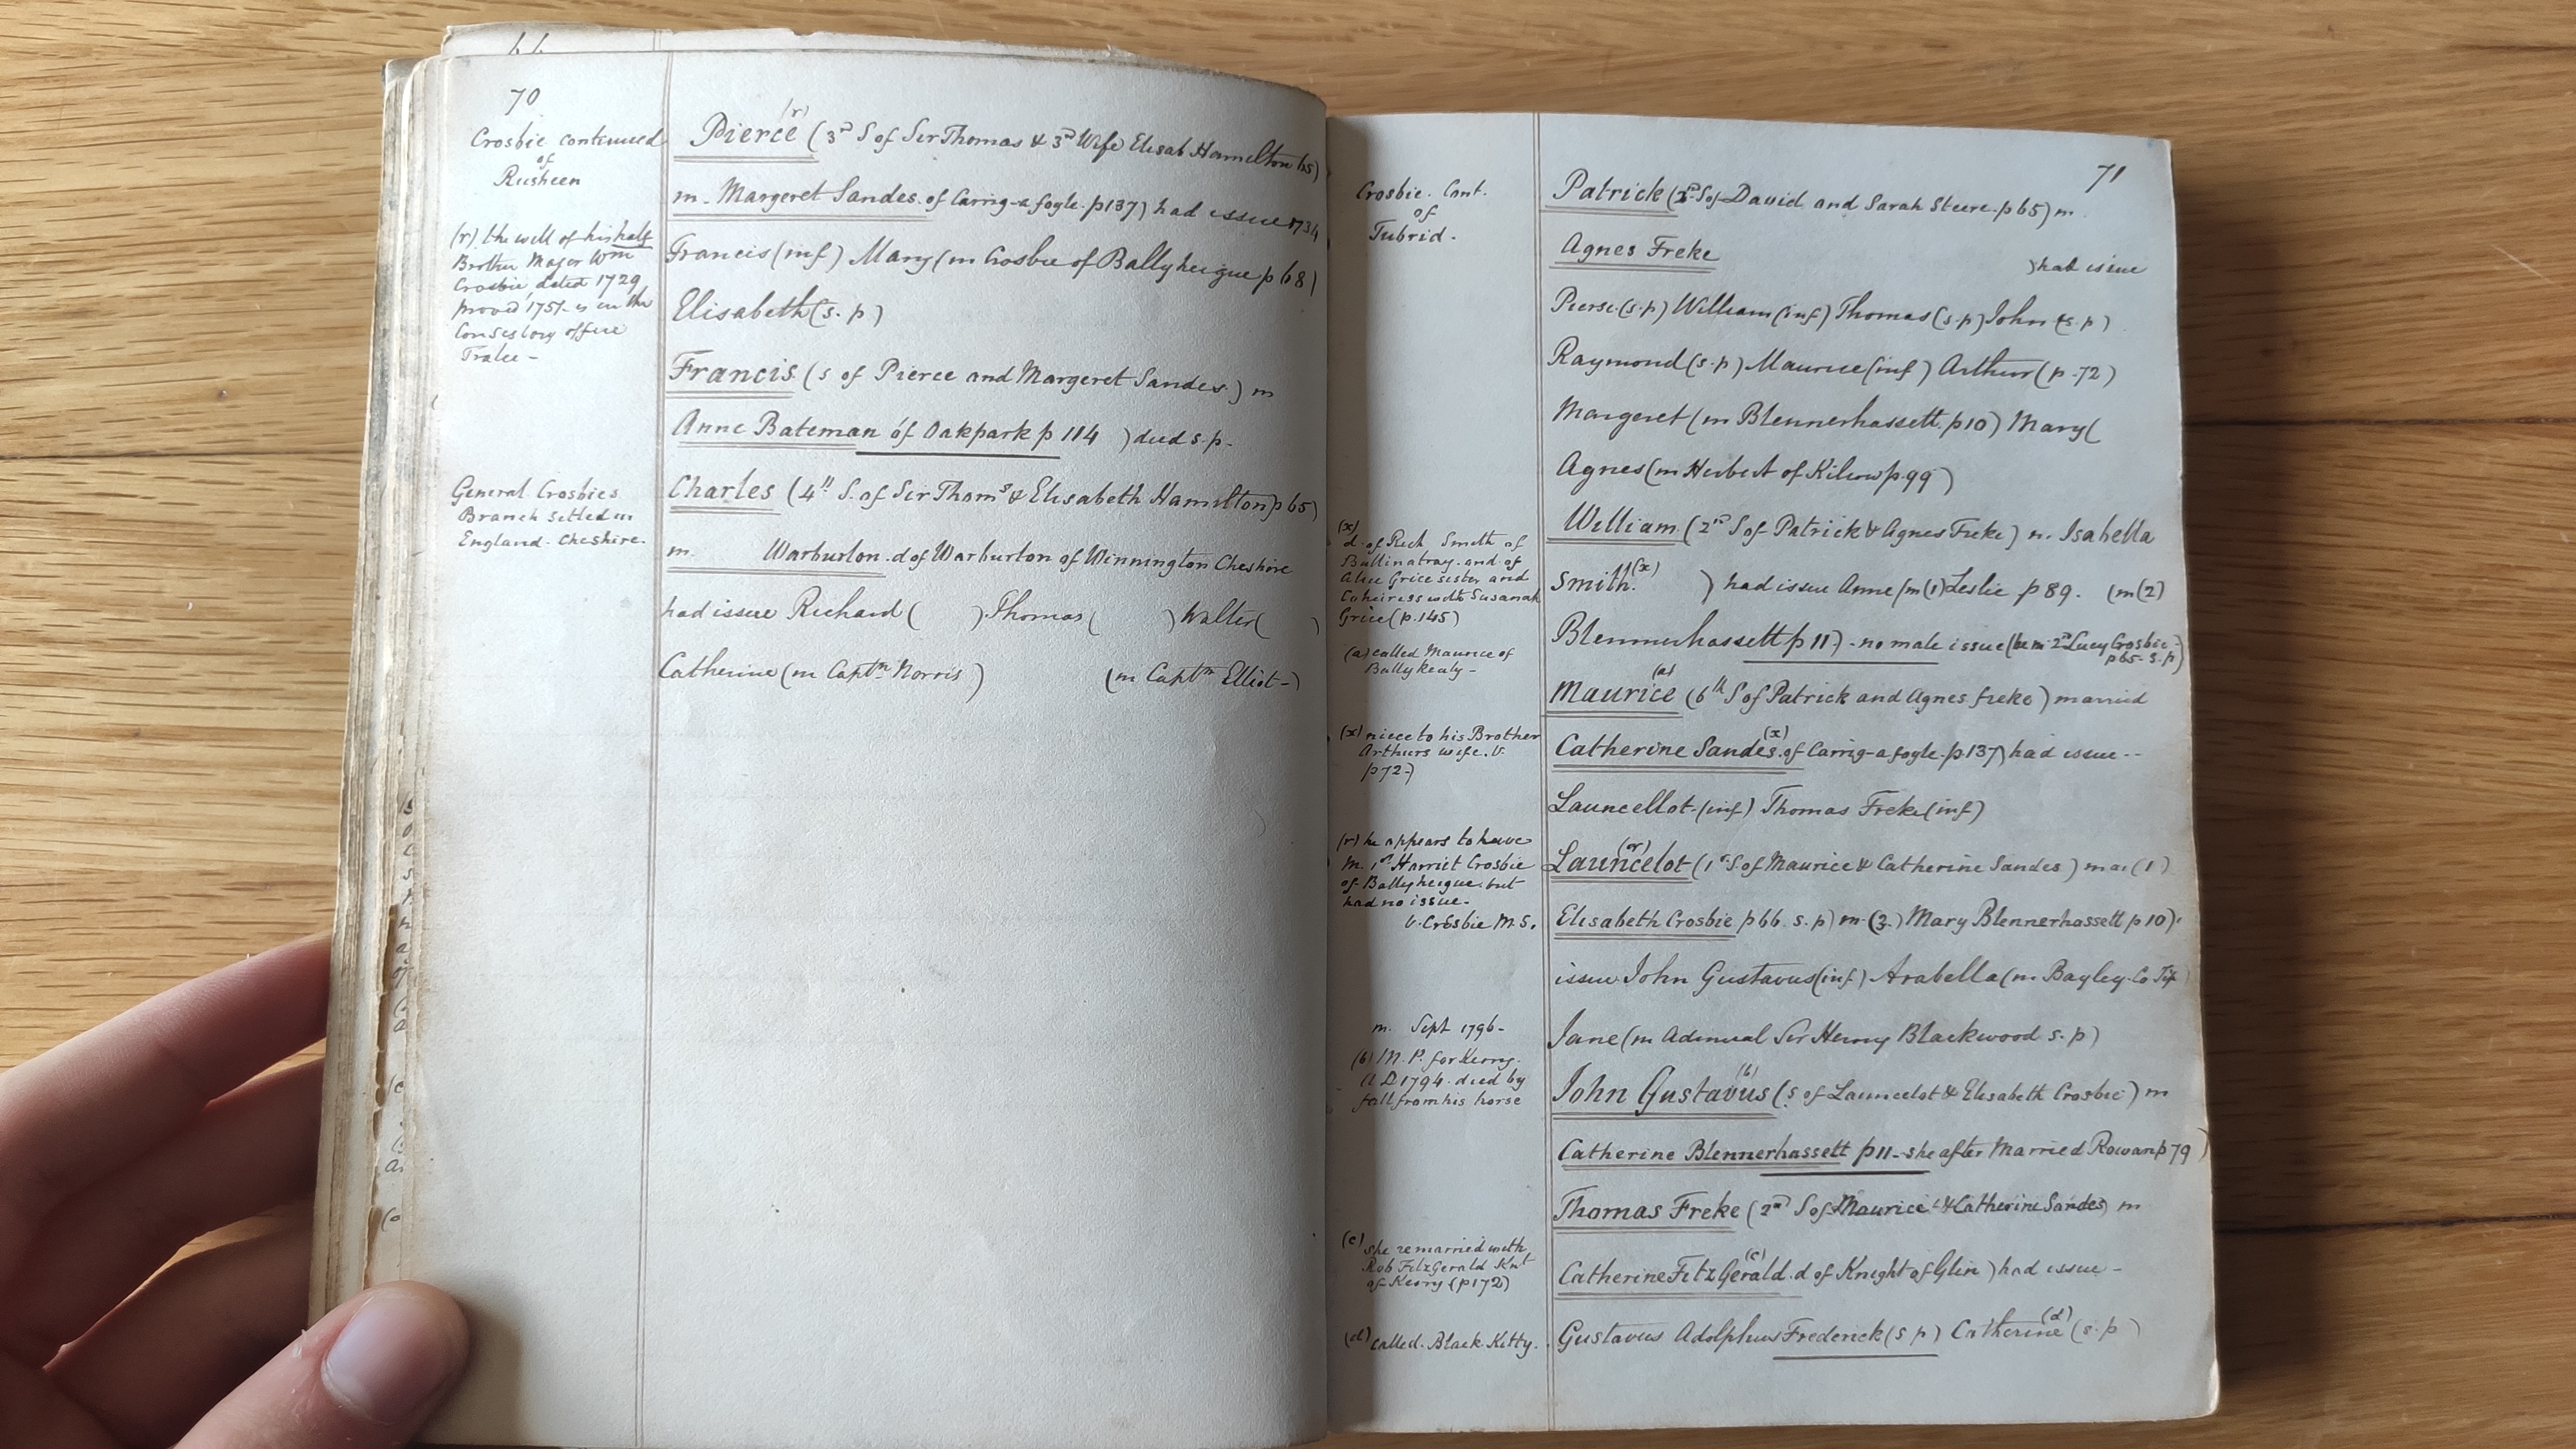 70
Crosbie continued
of
Rusheen
(r) the will of his half
Brother Major Wm
Crosbie, dated 1729
proved 1751 is in the
Consistory office
Tralee -
General Crosbies
Branch settled in
England. Cheshire.
Pierce (r) (3rd S of Sir Thomas & 3rd Wife Elisab Hamilton 65)
m. Margeret Sandes. of Carrig-a foyle. p137) had issue 1734
Francis (inf) Mary (m Crosbie of Ballyheigue p 68)
Elisabeth (s. p)
Francis (s of Pierce and Margeret Sandes.) m
Anne Bateman of Oakpark p 114 ) died s. p.
Charles (4th S. of Sir Thoms & Elisabeth Hamilton p 65)
m. Warburton. d of Warburton of Winnington Cheshire
had issue Richard ( ) Thomas ( ) Walter ( )
Catherine (m Captn. Norris ) (m Captn Elliot -)
71
Crosbie. Cont.
of
Tubrid.
(x)
d. of Rich Smith of
Ballinatray. and of
Alice Grice sister and
Coheiress with Susanah
Grice (p. 145)
(a) called Maurice of
Ballykealy -
(x) niece to his Brother
Arthurs wife. V.
p72-)
(r) he appears to have
m. 1st Harriet Crosbie
of Ballyheigue. but
had no issue.
V. Crosbie M. S.
m. Sept 1796-
(b) M. P. for Kerry.
A D 1794. died by
fall from his horse
(c) she remarried with
Rob FitzGerald Knt
of Kerry (p172)
(d) called. Black. Kitty.
Patrick (2nd S of David and Sarah Steere. p 65) m
Agnes Freke ) had issue
Pierse (s. p) William (inf) Thomas (s. p) John (s. p)
Raymond (s. p) Maurice (inf) Arthur (p. 72)
Margeret (m Blennerhassett. p10) Mary (
Agnes (m Herbert of Kilcow p. 99)
William (2nd S of Patrick & Agnes Freke) m. Isabella
Smith. (x) ) had issue Anne (m (1) Leslie p 89. (m (2)
Blennerhassett p 11) - no male issue (he m 2nd Lucy Crosbie -
p 65- s. p)
Maurice (a) (6th S of Patrick and Agnes freke) married
Catherine Sandes. (x) of Carrig-a foyle. p. 137) had issue --
Launcellot (inf) Thomas Freke (inf)
Launcelot (r) (1st S. of Maurice & Catherine Sandes) mar (1)
Elisabeth Crosbie p 66. s. p) m (2) Mary Blennerhassett p 10)
issue John Gustavus (inf) Arabella (m. Bayley. Co Tip
Jane (m Admiral Sir Henry Blackwood s. p)
John Gustavus (b) (s of Launcelot & Elisabeth Crosbie) m
Catherine Blennerhassett p 11 - she after Married Rowan p 79 )
Thomas Freke (2nd S of Maurice & Catherine Sandes) m
Catherine FitzGerald (c) . d of Knight of Glin ) had issue -
Gustavus Adolphus Frederick (s p) Catherine (d) (s. p)